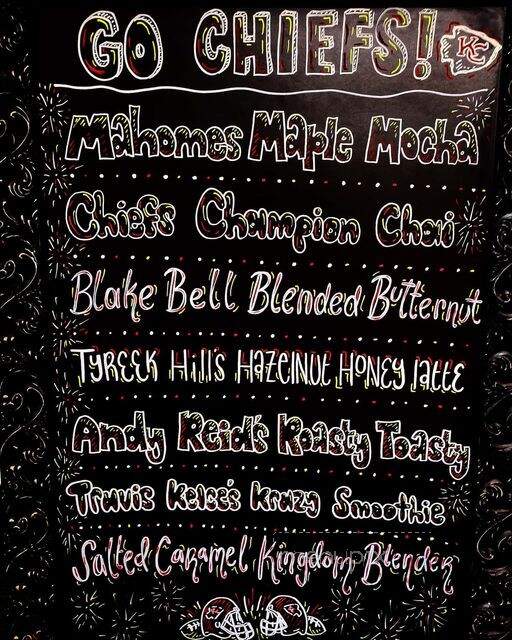 GO CHIEFS! KC
Mahomes Maple Mocha
Chiefs Champion Chai
Blake Bell Blended Butternut
Tyreek Hill's Hazelnut Honey latte
Andy Reid's Roasty Toasty
Travis Kelse's Krazy Smoothie
Salted Caramel Kingdom Blender